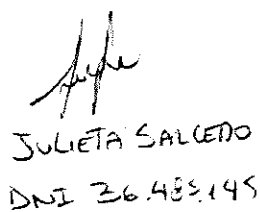 JULIETA SALCEDO
DNI 36.485.145